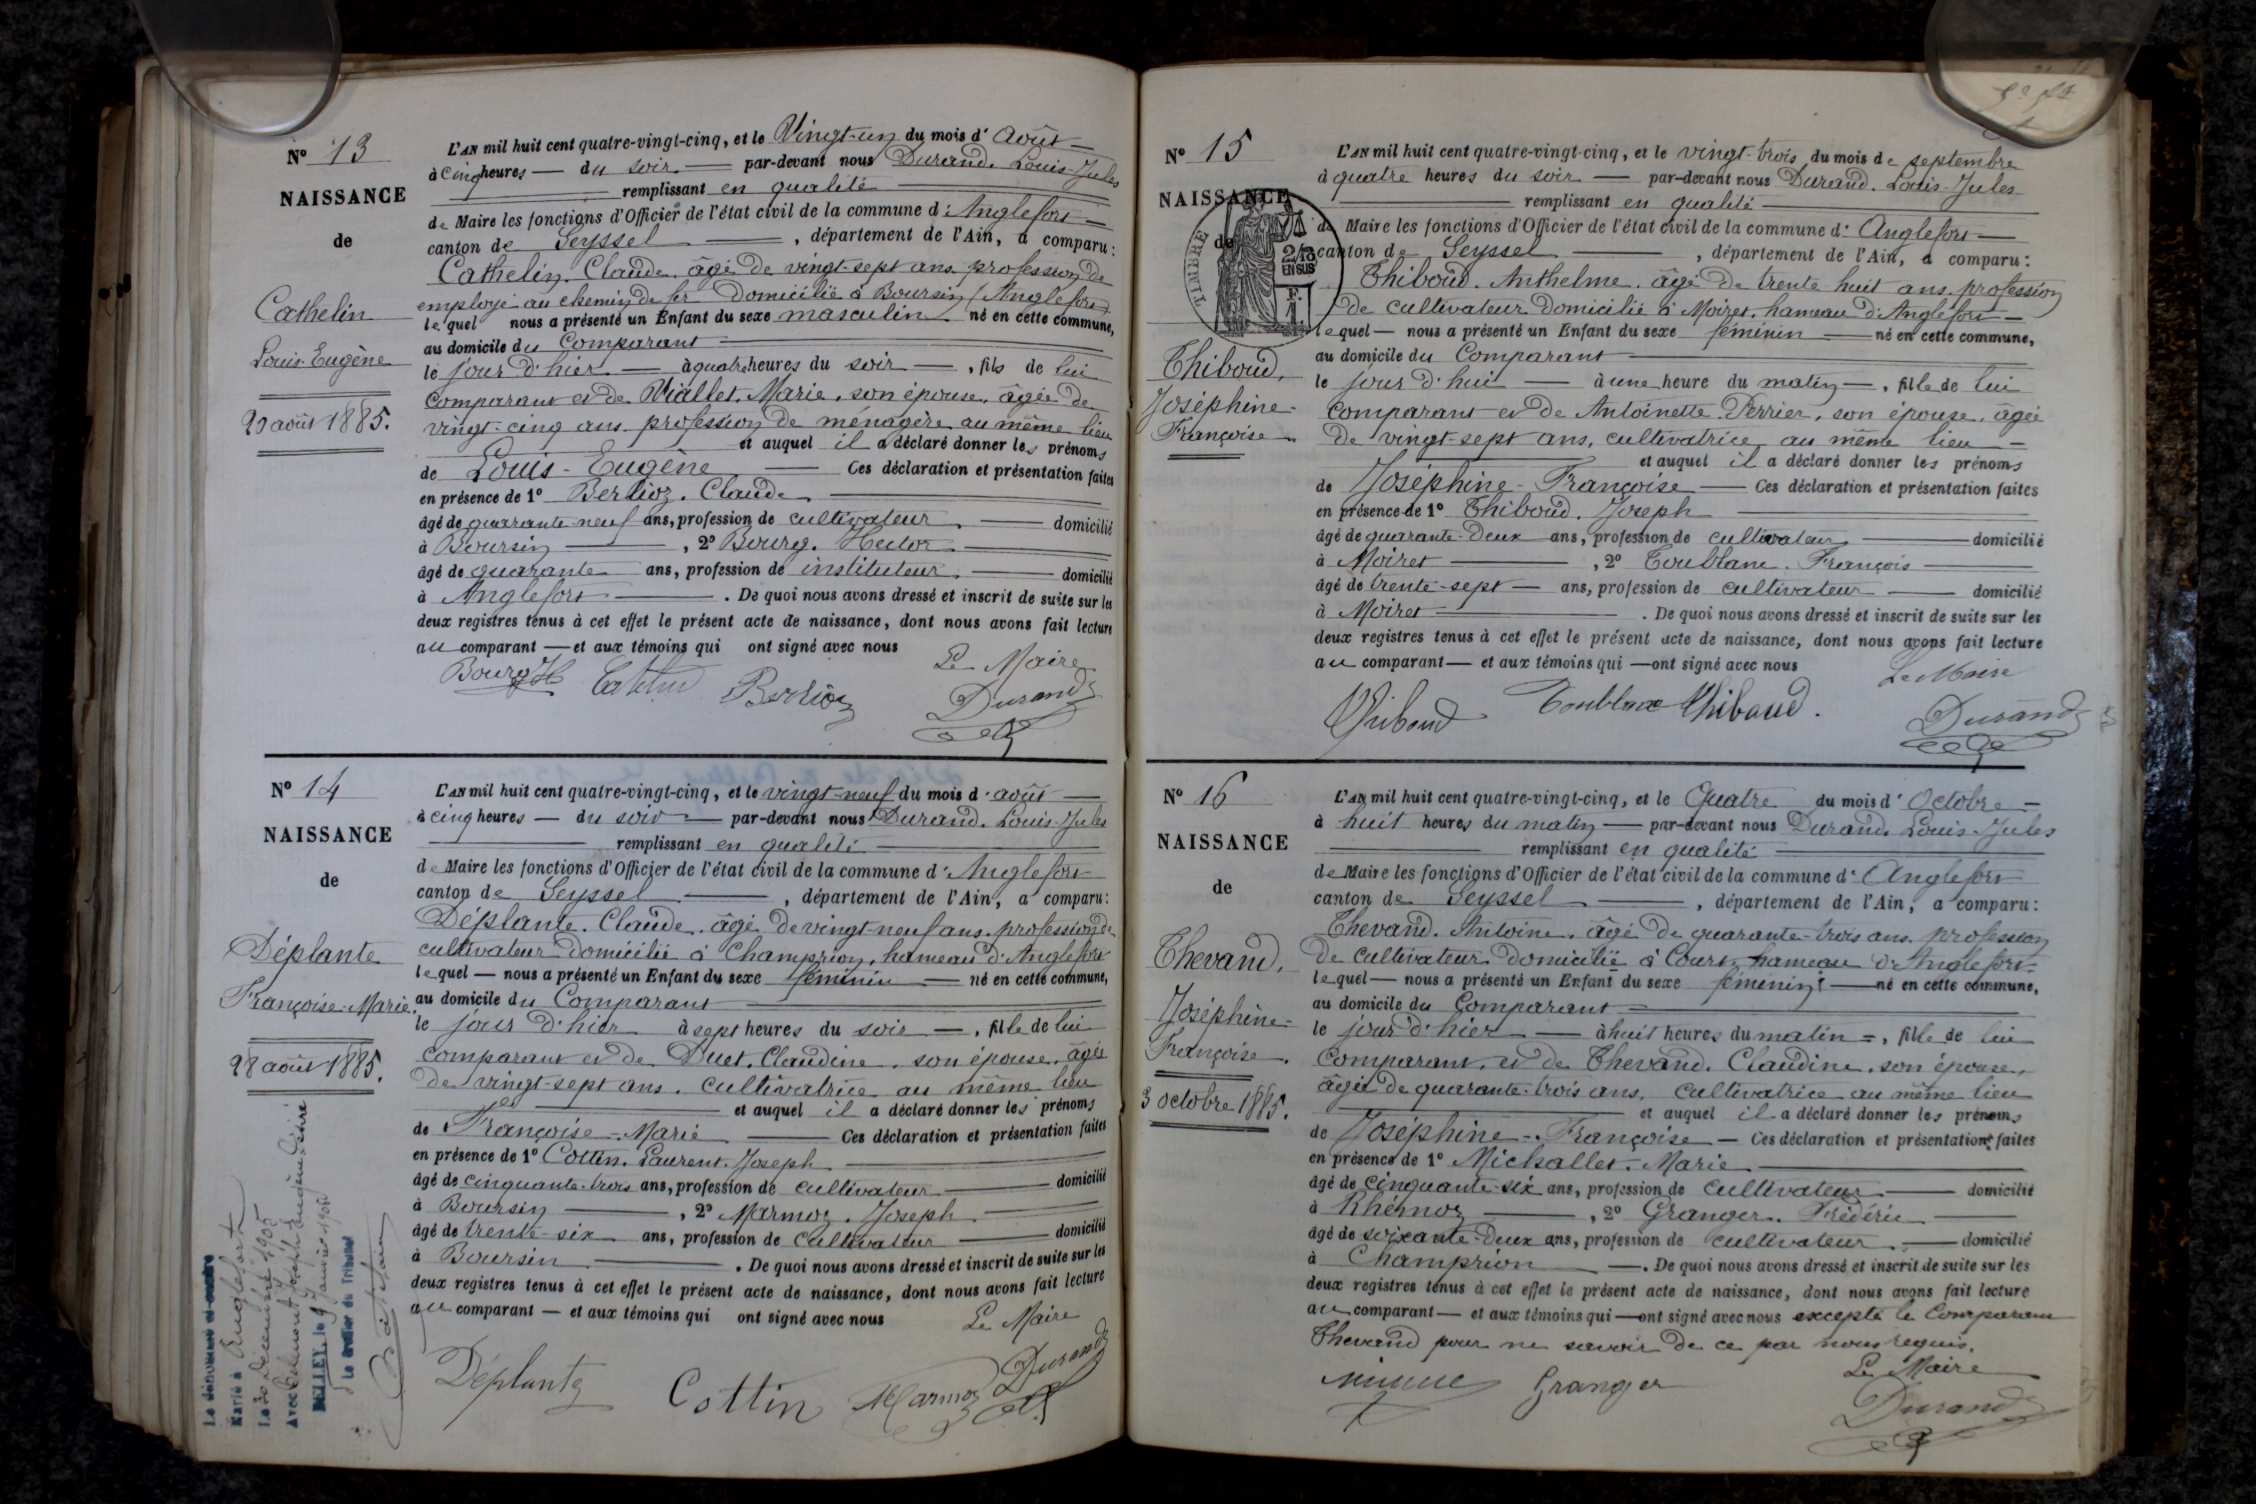 Nº 13
NAISSANCE
de
Cathelin
Louis Eugène
20 août 1885.
L'AN mil huit cent quatre-vingt-cinq, et le Vingt-un du mois d' août
à cinq heures du soir par-devant nous Durand. Louis-Jules
remplissant en qualité
de Maire les fonctions d'Officier de l'état civil de la commune d' Anglefort
canton de Seyssel, département de l'Ain, a comparu:
Cathelin. Claude. âgé de vingt-sept ans. profession de
employé au chemin de fer domicilié à Boursin (Anglefort)
lequel nous a présenté un Enfant du sexe masculin né en cette commune,
au domicile du Comparant
le jour d'hier à quatre heures du soir, fils de lui
comparant et de Viallet. Marie. son épouse. âgée de
vingt-cinq ans. profession de ménagère au même lieu
et auquel il a déclaré donner les prénoms
de Louis-Eugène Ces déclaration et présentation faites
en présence de 1º Berlioz. Claude
âgé de quarante-neuf ans, profession de cultivateur domicilié
à Boursin, 2º Bourg. Hector
âgé de quarante ans, profession de instituteur domicilié
à Anglefort. De quoi nous avons dressé et inscrit de suite sur les
deux registres tenus à cet effet le présent acte de naissance, dont nous avons fait lecture
au comparant et aux témoins qui ont signé avec nous
Le Maire
Bourg H Cathelin Berlioz Durand
Nº 14
NAISSANCE
de
Déplante
Françoise-Marie.
28 août 1885.
L'AN mil huit cent quatre-vingt-cinq, et le vingt-neuf du mois d' août
à cinq heures du soir par-devant nous Durand. Louis-Jules
remplissant en qualité
de Maire les fonctions d'Officier de l'état civil de la commune d' Anglefort
canton de Seyssel, département de l'Ain, a comparu:
Déplante. Claude. âgé de vingt-neuf ans. profession de
cultivateur domicilié à Champrion, hameau d'Anglefort
lequel nous a présenté un Enfant du sexe féminin né en cette commune,
au domicile du Comparant
le jour d'hier à sept heures du soir, fille de lui
comparant et de Duet. Claudine. son épouse. âgée
de vingt-sept ans. cultivatrice au même lieu
et auquel il a déclaré donner les prénoms
de Françoise-Marie Ces déclaration et présentation faites
en présence de 1º Cottin. Laurent. Joseph
âgé de cinquante-trois ans, profession de cultivateur domicilié
à Boursin, 2º Marmoz. Joseph
âgé de trente-six ans, profession de cultivateur domicilié
à Boursin. De quoi nous avons dressé et inscrit de suite sur les
deux registres tenus à cet effet le présent acte de naissance, dont nous avons fait lecture
au comparant et aux témoins qui ont signé avec nous
Le Maire
Déplante Cottin Marmoz Durand
La dénommée ci-contre
Marié à Anglefort
Le 30 Décembre 1905
Avec Joseph Eugène Désiré
BELLEY, le 9 Janvier 1906
Le Greffier du Tribunal
Nº 15
NAISSANCE
de
TIMBRE
2/10
EN SUS
F.
1.
Thiboud.
Joséphine-
Françoise.
L'AN mil huit cent quatre-vingt-cinq, et le vingt-trois du mois de septembre
à quatre heures du soir par-devant nous Durand. Louis-Jules
remplissant en qualité
de Maire les fonctions d'Officier de l'état civil de la commune d' Anglefort
canton de Seyssel, département de l'Ain, a comparu:
Thiboud. Anthelme. âgé de trente huit ans. profession
de cultivateur domicilié à Moiret. hameau d'Anglefort
lequel nous a présenté un Enfant du sexe féminin né en cette commune,
au domicile du Comparant
le jour d'hui à une heure du matin, fille de lui
comparant et de Antoinette Perrier. son épouse. âgée
de vingt-sept ans. cultivatrice au même lieu
et auquel il a déclaré donner les prénoms
de Joséphine-Françoise Ces déclaration et présentation faites
en présence de 1º Thiboud. Joseph
âgé de quarante-deux ans, profession de cultivateur domicilié
à Moiret, 2º Toublanc. François
âgé de trente-sept ans, profession de cultivateur domicilié
à Moiret. De quoi nous avons dressé et inscrit de suite sur les
deux registres tenus à cet effet le présent acte de naissance, dont nous avons fait lecture
au comparant et aux témoins qui ont signé avec nous
Le Maire
Thiboud Toublanc Thiboud. Durand
Nº 16
NAISSANCE
de
Thevand.
Joséphine-
Françoise.
3 octobre 1885.
L'AN mil huit cent quatre-vingt-cinq, et le Quatre du mois d' Octobre
à huit heures du matin par-devant nous Durand. Louis-Jules
remplissant en qualité
de Maire les fonctions d'Officier de l'état civil de la commune d' Anglefort
canton de Seyssel, département de l'Ain, a comparu:
Thevand. Antoine. âgé de quarante-trois ans. profession
de cultivateur domicilié à Court, hameau d'Anglefort
lequel nous a présenté un Enfant du sexe féminin né en cette commune,
au domicile du Comparant
le jour d'hier à huit heures du matin, fille de lui
comparant et de Thevand. Claudine. son épouse.
âgée de quarante-trois ans. cultivatrice au même lieu
et auquel il a déclaré donner les prénoms
de Joséphine-Françoise Ces déclaration et présentations faites
en présence de 1º Michallet. Marie
âgé de cinquante-six ans, profession de cultivateur domicilié
à Rhémoz, 2º Granger. Frédéric
âgé de soixante-deux ans, profession de cultivateur domicilié
à Champrion. De quoi nous avons dressé et inscrit de suite sur les
deux registres tenus à cet effet le présent acte de naissance, dont nous avons fait lecture
au comparant et aux témoins qui ont signé avec nous excepté le Comparant
Thevand pour ne savoir de ce par nous requis.
Le Maire
Granger Durand